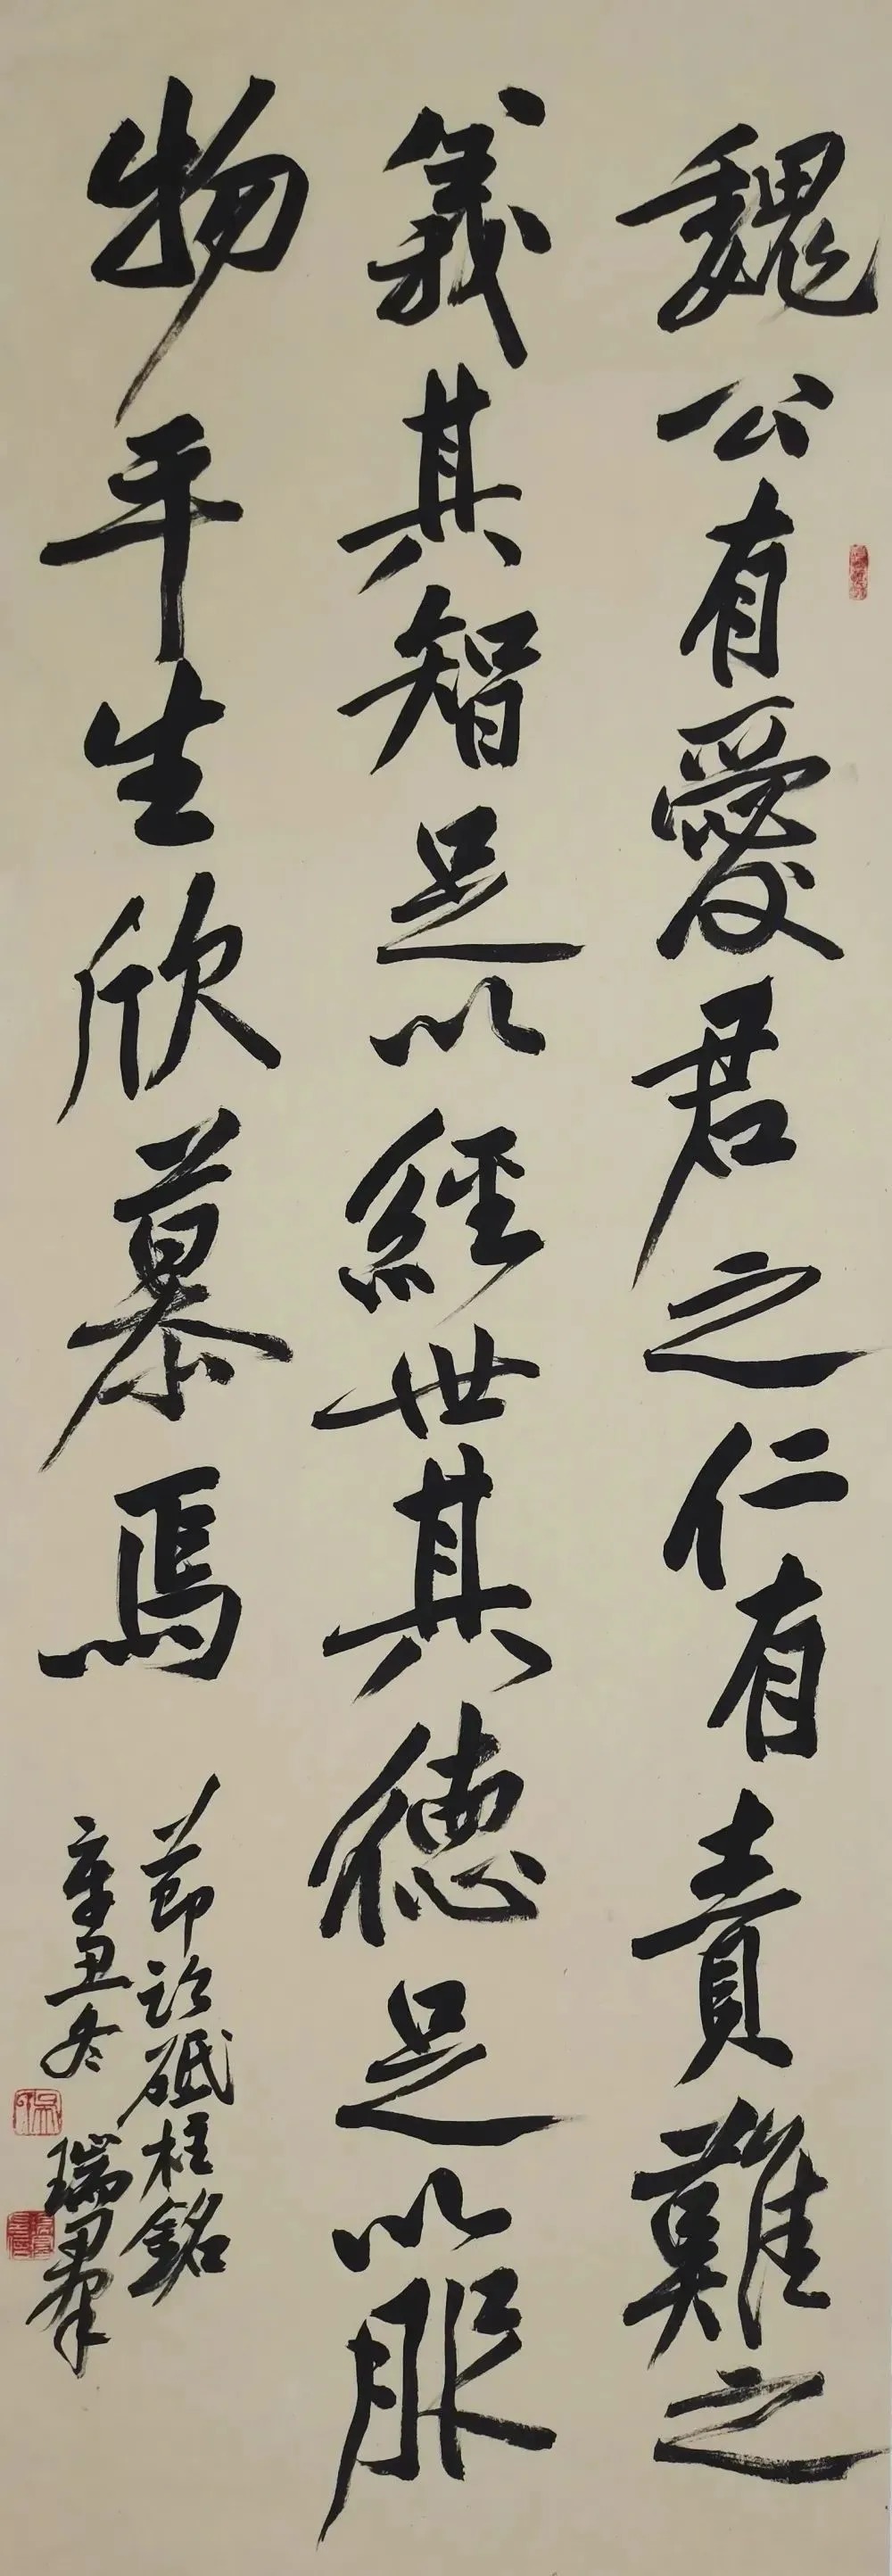 魏公有愛君之仁有責難之
義其智足以經世其德足以服
物平生欣慕焉
節臨砥柱銘
辛丑冬
瑞羣